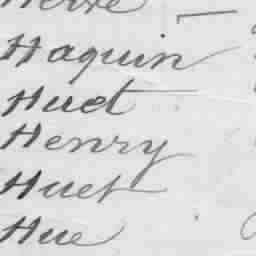 Haquin
Huet
Henry
Huet
Hue